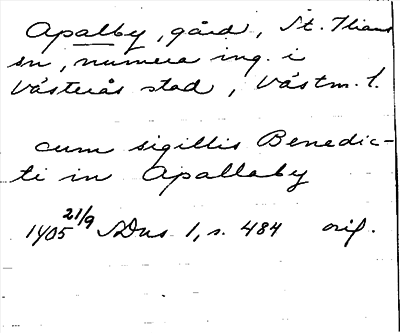 Apalby, gård, St. Ilians
sn, numera ing. i
Västerås stad, Västm. l.
cum sigillis Benedic-
ti in Apallaby
1405 21/9 SDns 1, s. 484 orig.